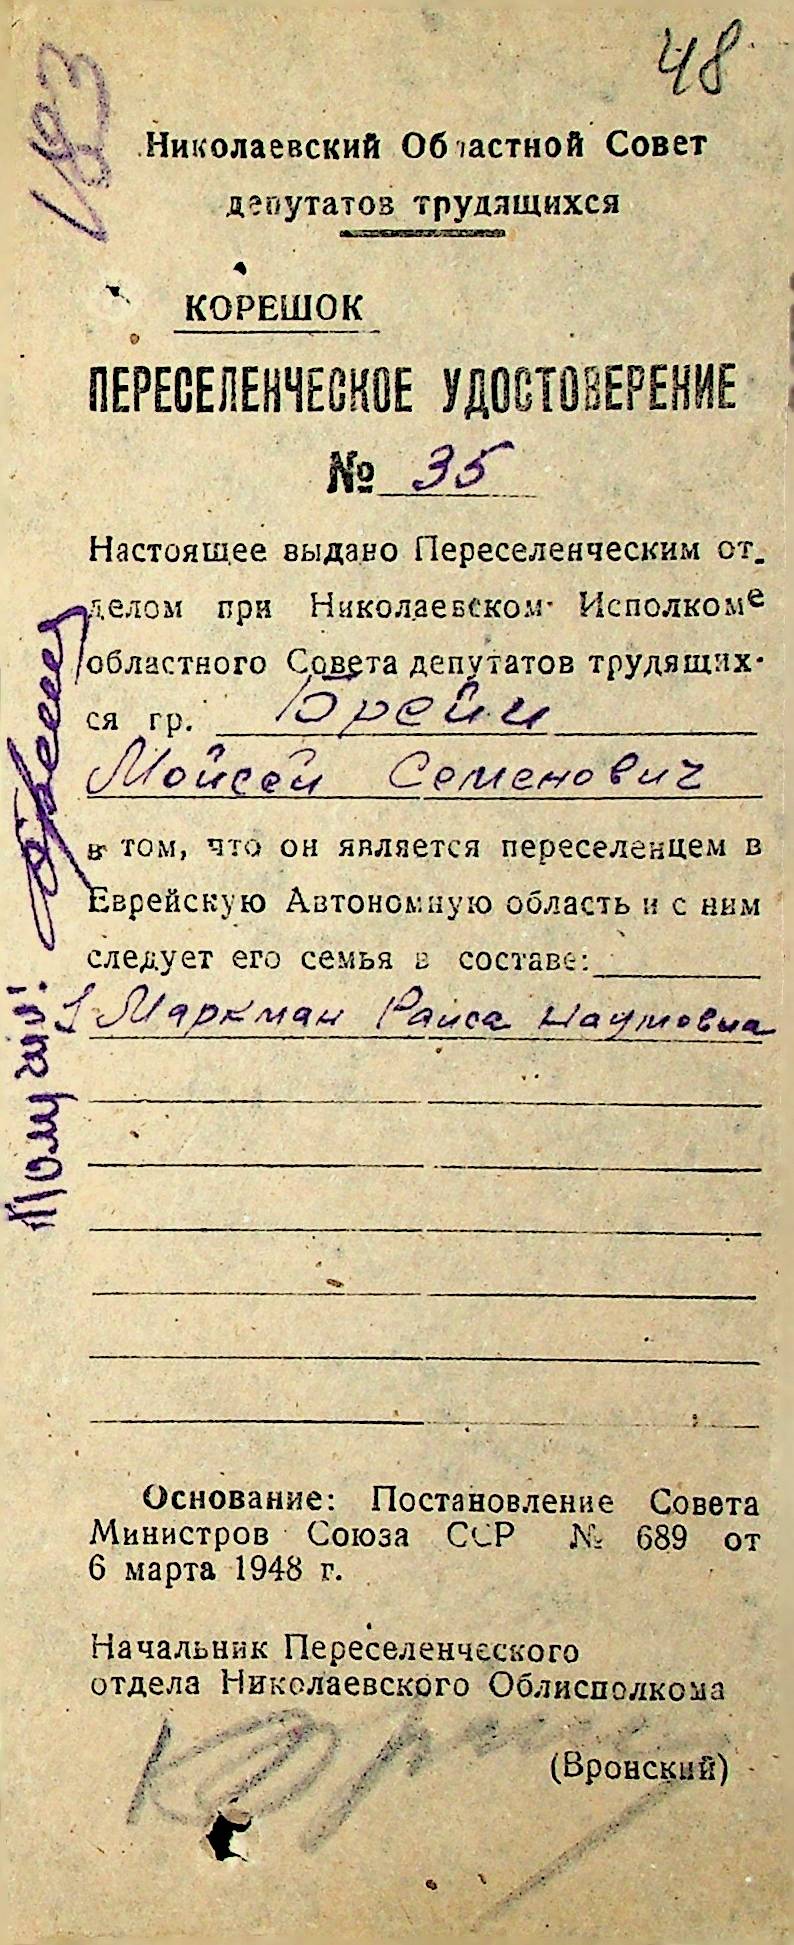 48
183
Николаевский Областной Совет
депутатов трудящихся
КОРЕШОК
ПЕРЕСЕЛЕНЧЕСКОЕ УДОСТОВЕРЕНИЕ
№ 35
Настоящее выдано Переселенческим от-
делом при Николаевском Исполкоме
областного Совета депутатов трудящих-
ся гр. Брейи
Мойсей Семенович
в том, что он является переселенцем в
Еврейскую Автономную область и с ним
следует его семья в составе:
1 Маркман Раиса Наумовна
Получил:
Основание: Постановление Совета
Министров Союза ССР № 689 от
6 марта 1948 г.
Начальник Переселенческого
отдела Николаевского Облисполкома
(Вронский)